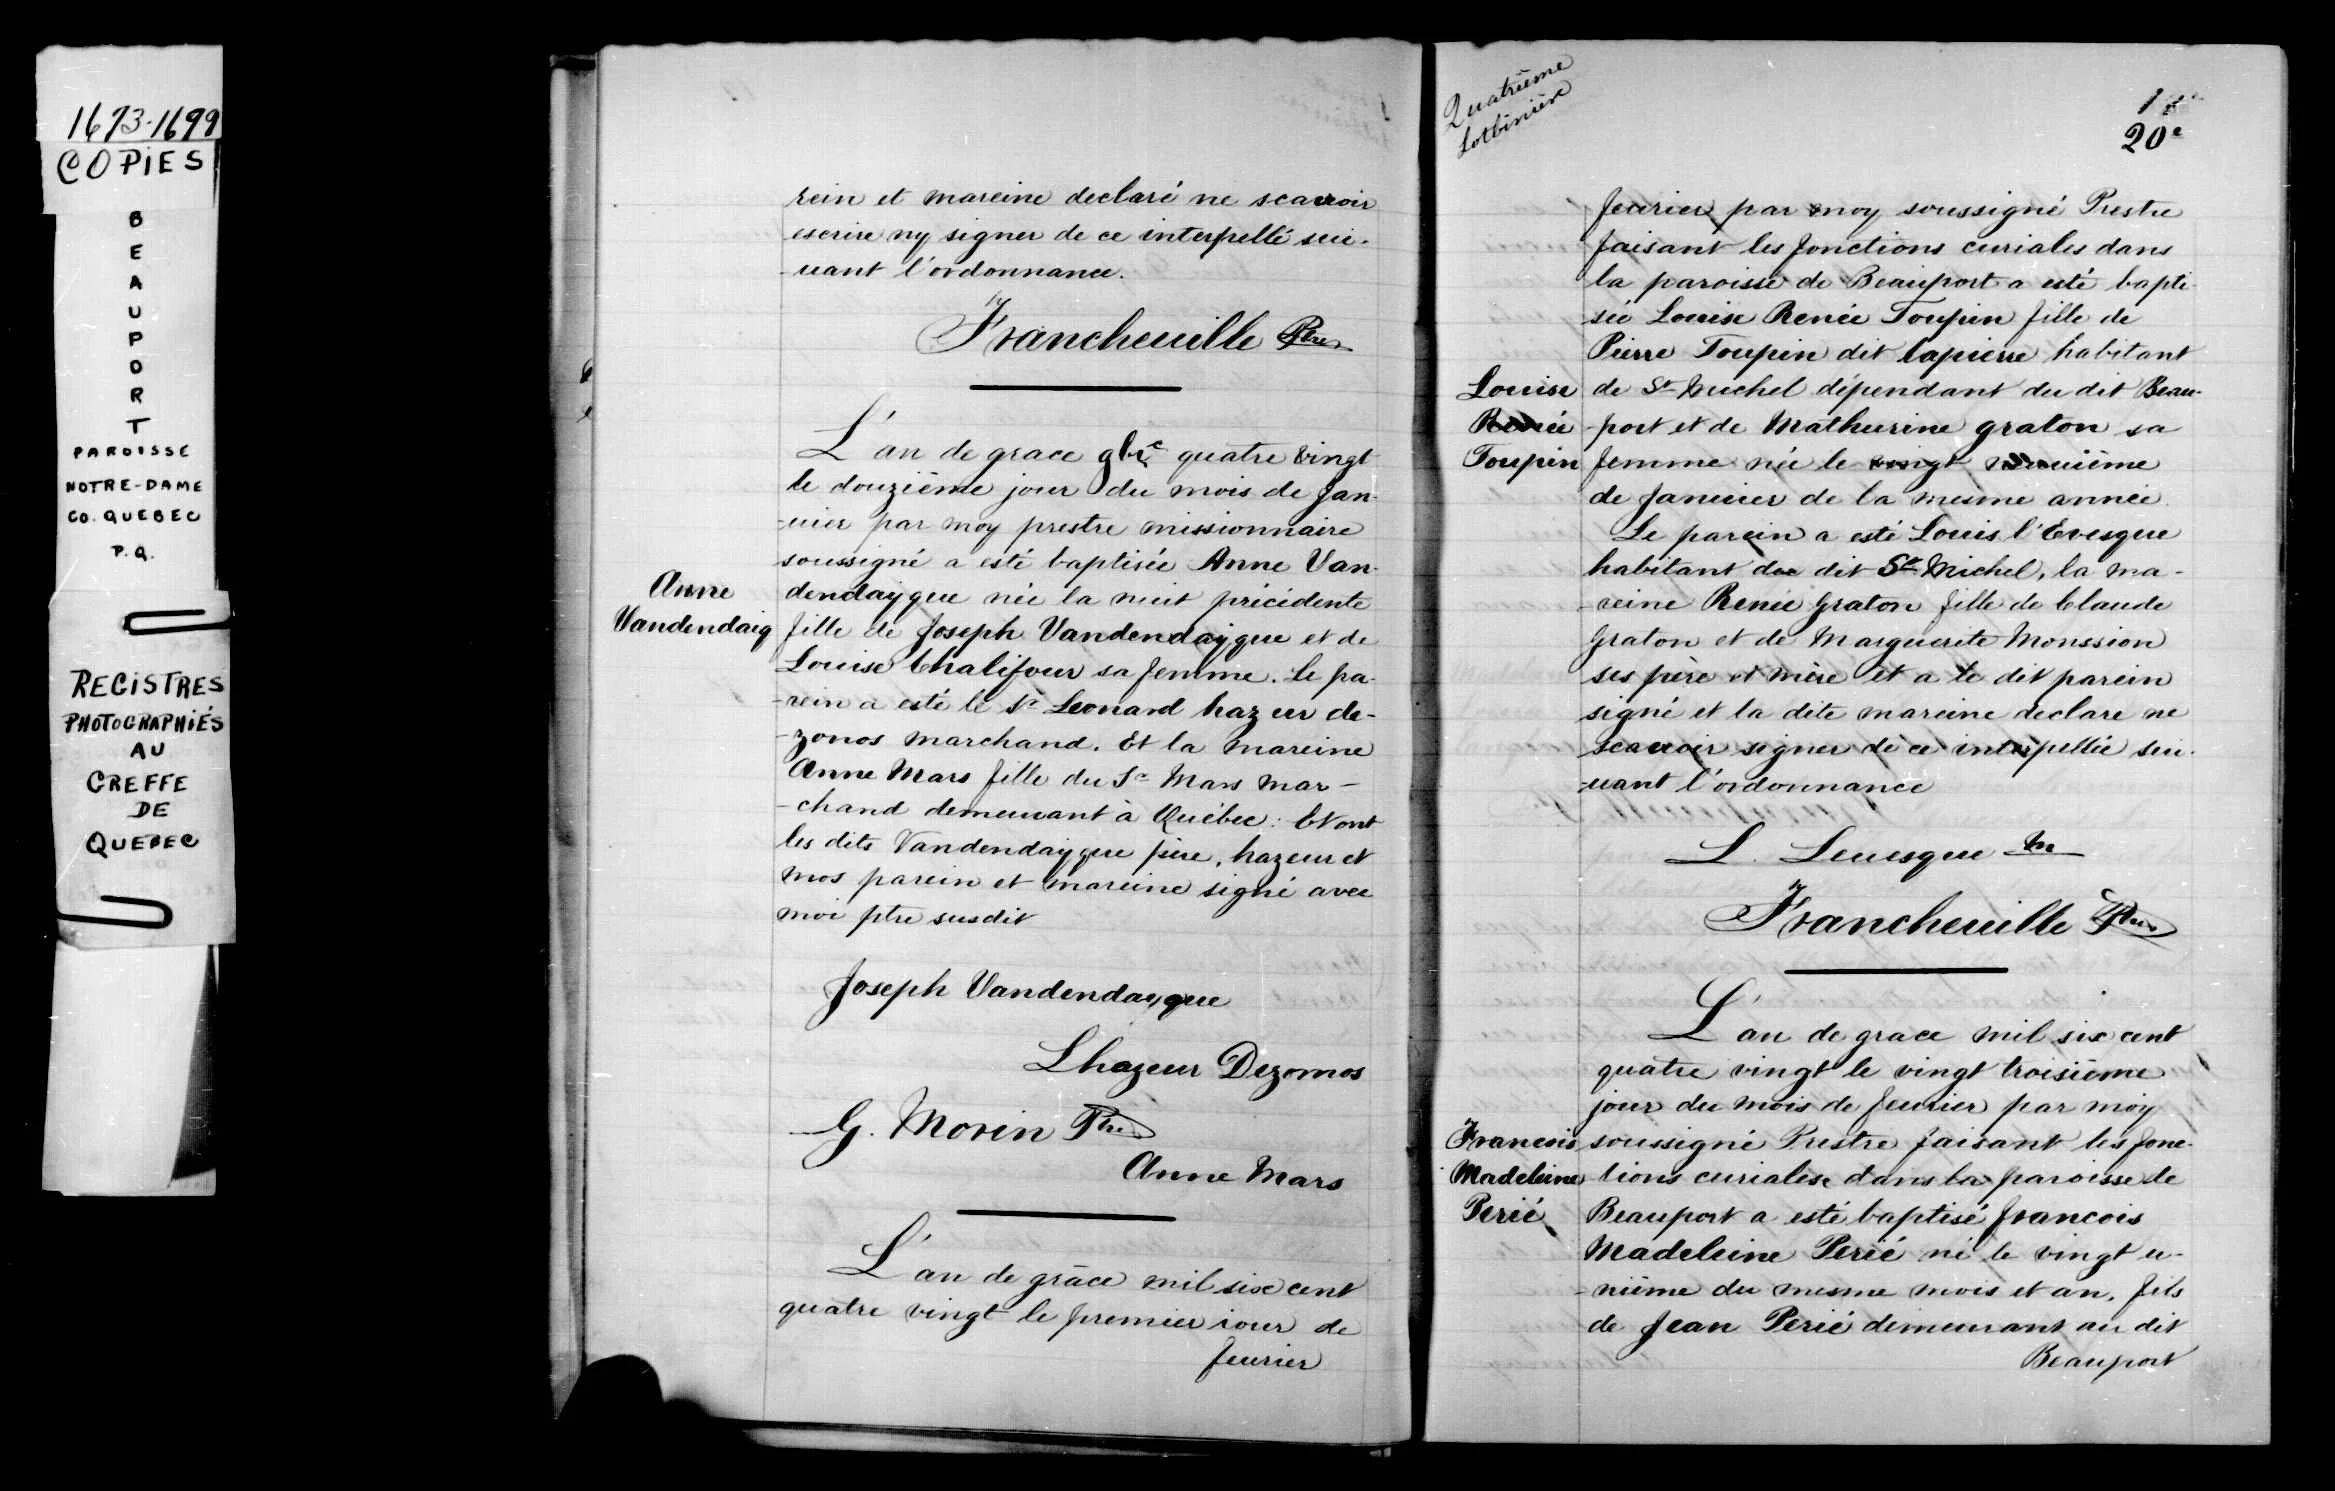 1673-1699
COPiES
B
E
A
U
P
O
R
T
PAROISSE
NOTRE-DAME
CO. QUEBEC
P.Q.
REGISTRES
PHOTOGRAPHIÉS
AU
GREFFE
DE
QUEBEC
rein et mareine declaré ne scavoir
escrire ny signer de ce interpellé sui-
-uant l'ordonnance.
Francheuille Ptre
L'an de grace quatre vingt
le douzième jour du mois de Jan-
-uier par moy prestre missionnaire
soussigné a esté baptisée Anne Van-
Anne
Vandendaig
dendaÿgue née la nuit précédente
fille de Joseph Vandendaÿgue et de
Louise Chalifour sa femme. Le pa-
-rein a esté le Sr Leonard hazeur de-
-zonos marchand. Et la mareine
Anne Mars fille du Sr Mars mar-
-chand demeurant à Québec : Et ont
les dits Vandendaygue père, hazeur et
mos parein et mareine signé avec
moi ptre susdit
Joseph Vandendaygue
Lhazeur Dezomos
G. Morin Ptre
Anne Mars
L'an de grâce mil six cent
quatre vingt le premier iour de
feurier
Quatrième
Lotbinière
20e
feurier par moy soussigné Prestre
faisant les fonctions curiales dans
la paroisse de Beauport a esté bapti-
sée Louise Renée Toupin fille de
Pierre Toupin dit lapierre habitant
Louise
Renée
Toupin
de St Michel dépendant du dit Beau-
-port et de Mathurine graton sa
femme née le vingt neuuième
de Januier de la mesme année.
Le parein a esté Louis l'Evesque
habitant du dit St Michel, la ma-
-reine Renée Graton fille de Claude
Graton et de Marguerite Monssion
ses père et mère et a le dit parein
signé et la dite mareine declare ne
scauoir signer de ce interpellée sui-
-uant l'ordonnance
L. Leuesque
Francheuille Ptre
L'an de grace mil six cent
quatre vingt le vingt troisième
jour du mois de feurier par moy
Francois
Madeleine
Perié
soussigné Prestre faisant les fonc-
-tions curiales dans la paroisse de
Beauport a esté baptisé francois
Madeleine Perié né le vingt u-
-nième du mesme mois et an, fils
de Jean Perié demeurant au dit
Beauport